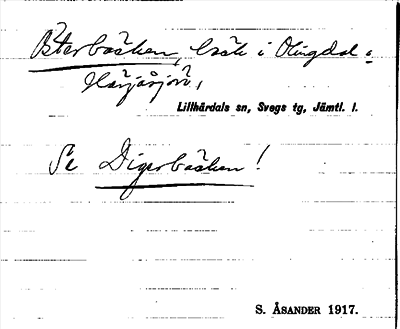 Österbäcken, bäck i Olingdal o
Härjåsjön,
Lillhärdals sn, Svegs tg, Jämtl. l.
Se Digerbäcken!
S. ÅSANDER 1917.